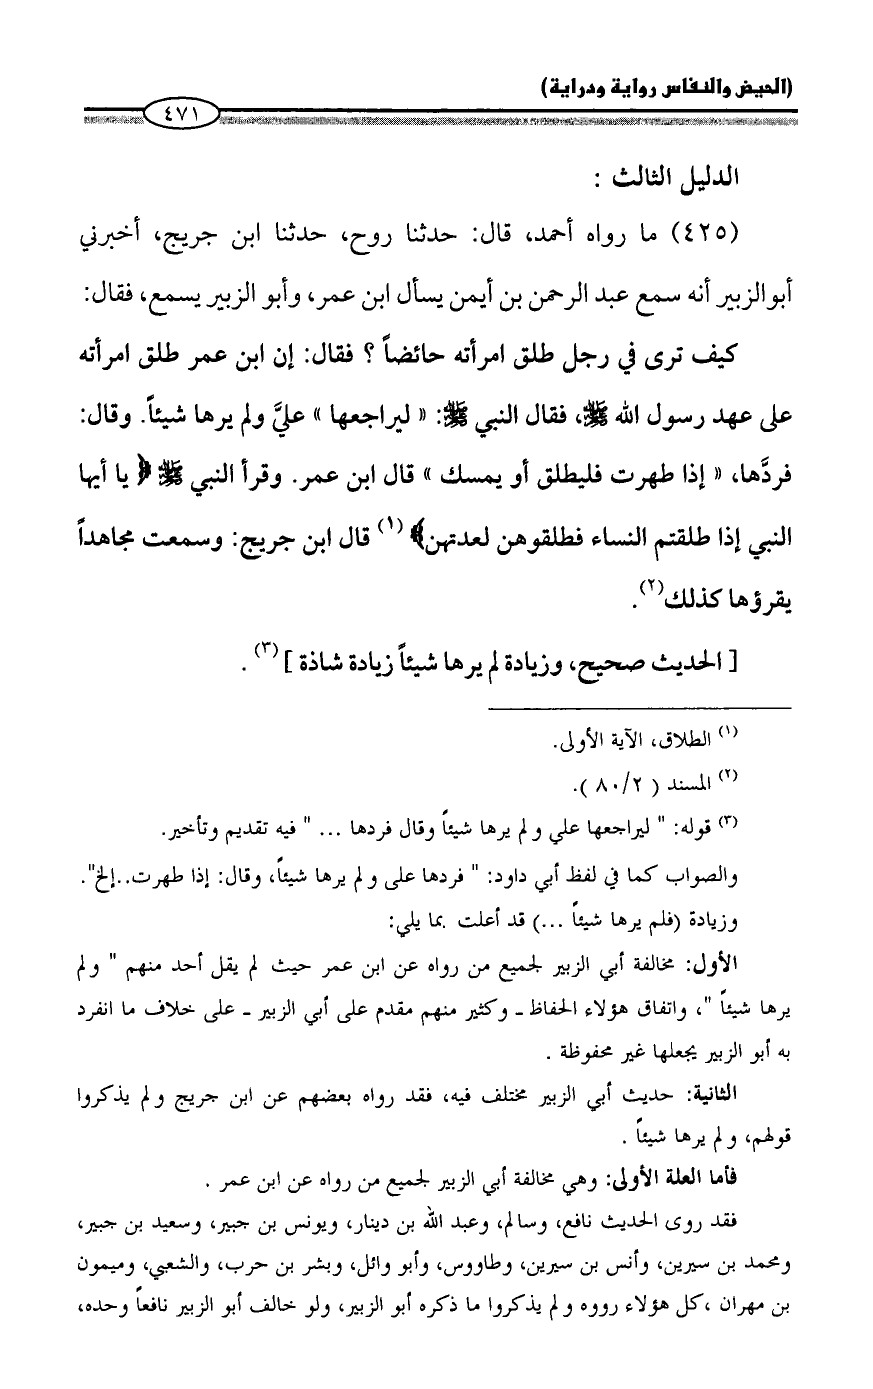 (الحيض والنفاس رواية ودراية)
٤٧١
الدليل الثالث :
(٤٢٥) ما رواه أحمد، قال: حدثنا روح، حدثنا ابن جريج، أخبرني
أبوالزبير أنه سمع عبد الرحمن بن أيمن يسأل ابن عمر، وأبو الزبير يسمع، فقال:
كيف ترى في رجل طلق امرأته حائضاً ؟ فقال: إن ابن عمر طلق امرأته
على عهد رسول الله ﷺ، فقال النبي ﷺ: « ليراجعها » عليَّ ولم يرها شيئاً. وقال:
فردَّها، « إذا طهرت فليطلق أو يمسك » قال ابن عمر. وقرأ النبي ﷺ ﴿ يا أيها
النبي إذا طلقتم النساء فطلقوهن لعدتهن﴾ (١) قال ابن جريج: وسمعت مجاهداً
يقرؤها كذلك(٢).
[ الحديث صحيح، وزيادة لم يرها شيئاً زيادة شاذة ] (٣) .
(١) الطلاق، الآية الأولى.
(٢) المسند ( ٨٠/٢ ).
(٣) قوله: " ليراجعها علي ولم يرها شيئاً وقال فردها ... " فيه تقديم وتأخير.
والصواب كما في لفظ أبي داود: " فردها على ولم يرها شيئاً، وقال: إذا طهرت..إلخ".
وزيادة (فلم يرها شيئاً ...) قد أعلت بما يلي:
الأول: مخالفة أبي الزبير لجميع من رواه عن ابن عمر حيث لم يقل أحد منهم " ولم
يرها شيئاً "، واتفاق هؤلاء الحفاظ ـ وكثير منهم مقدم على أبي الزبير ـ على خلاف ما انفرد
به أبو الزبير يجعلها غير محفوظة .
الثانية: حديث أبي الزبير مختلف فيه، فقد رواه بعضهم عن ابن جريج ولم يذكروا
قولهم، ولم يرها شيئاً .
فأما العلة الأولى: وهي مخالفة أبي الزبير لجميع من رواه عن ابن عمر .
فقد روى الحديث نافع، وسالم، وعبد الله بن دينار، ويونس بن جبير، وسعيد بن جبير،
ومحمد بن سيرين، وأنس بن سيرين، وطاووس، وأبو وائل، وبشر بن حرب، والشعبي، وميمون
بن مهران ،كل هؤلاء رووه ولم يذكروا ما ذكره أبو الزبير، ولو خالف أبو الزبير نافعاً وحده،